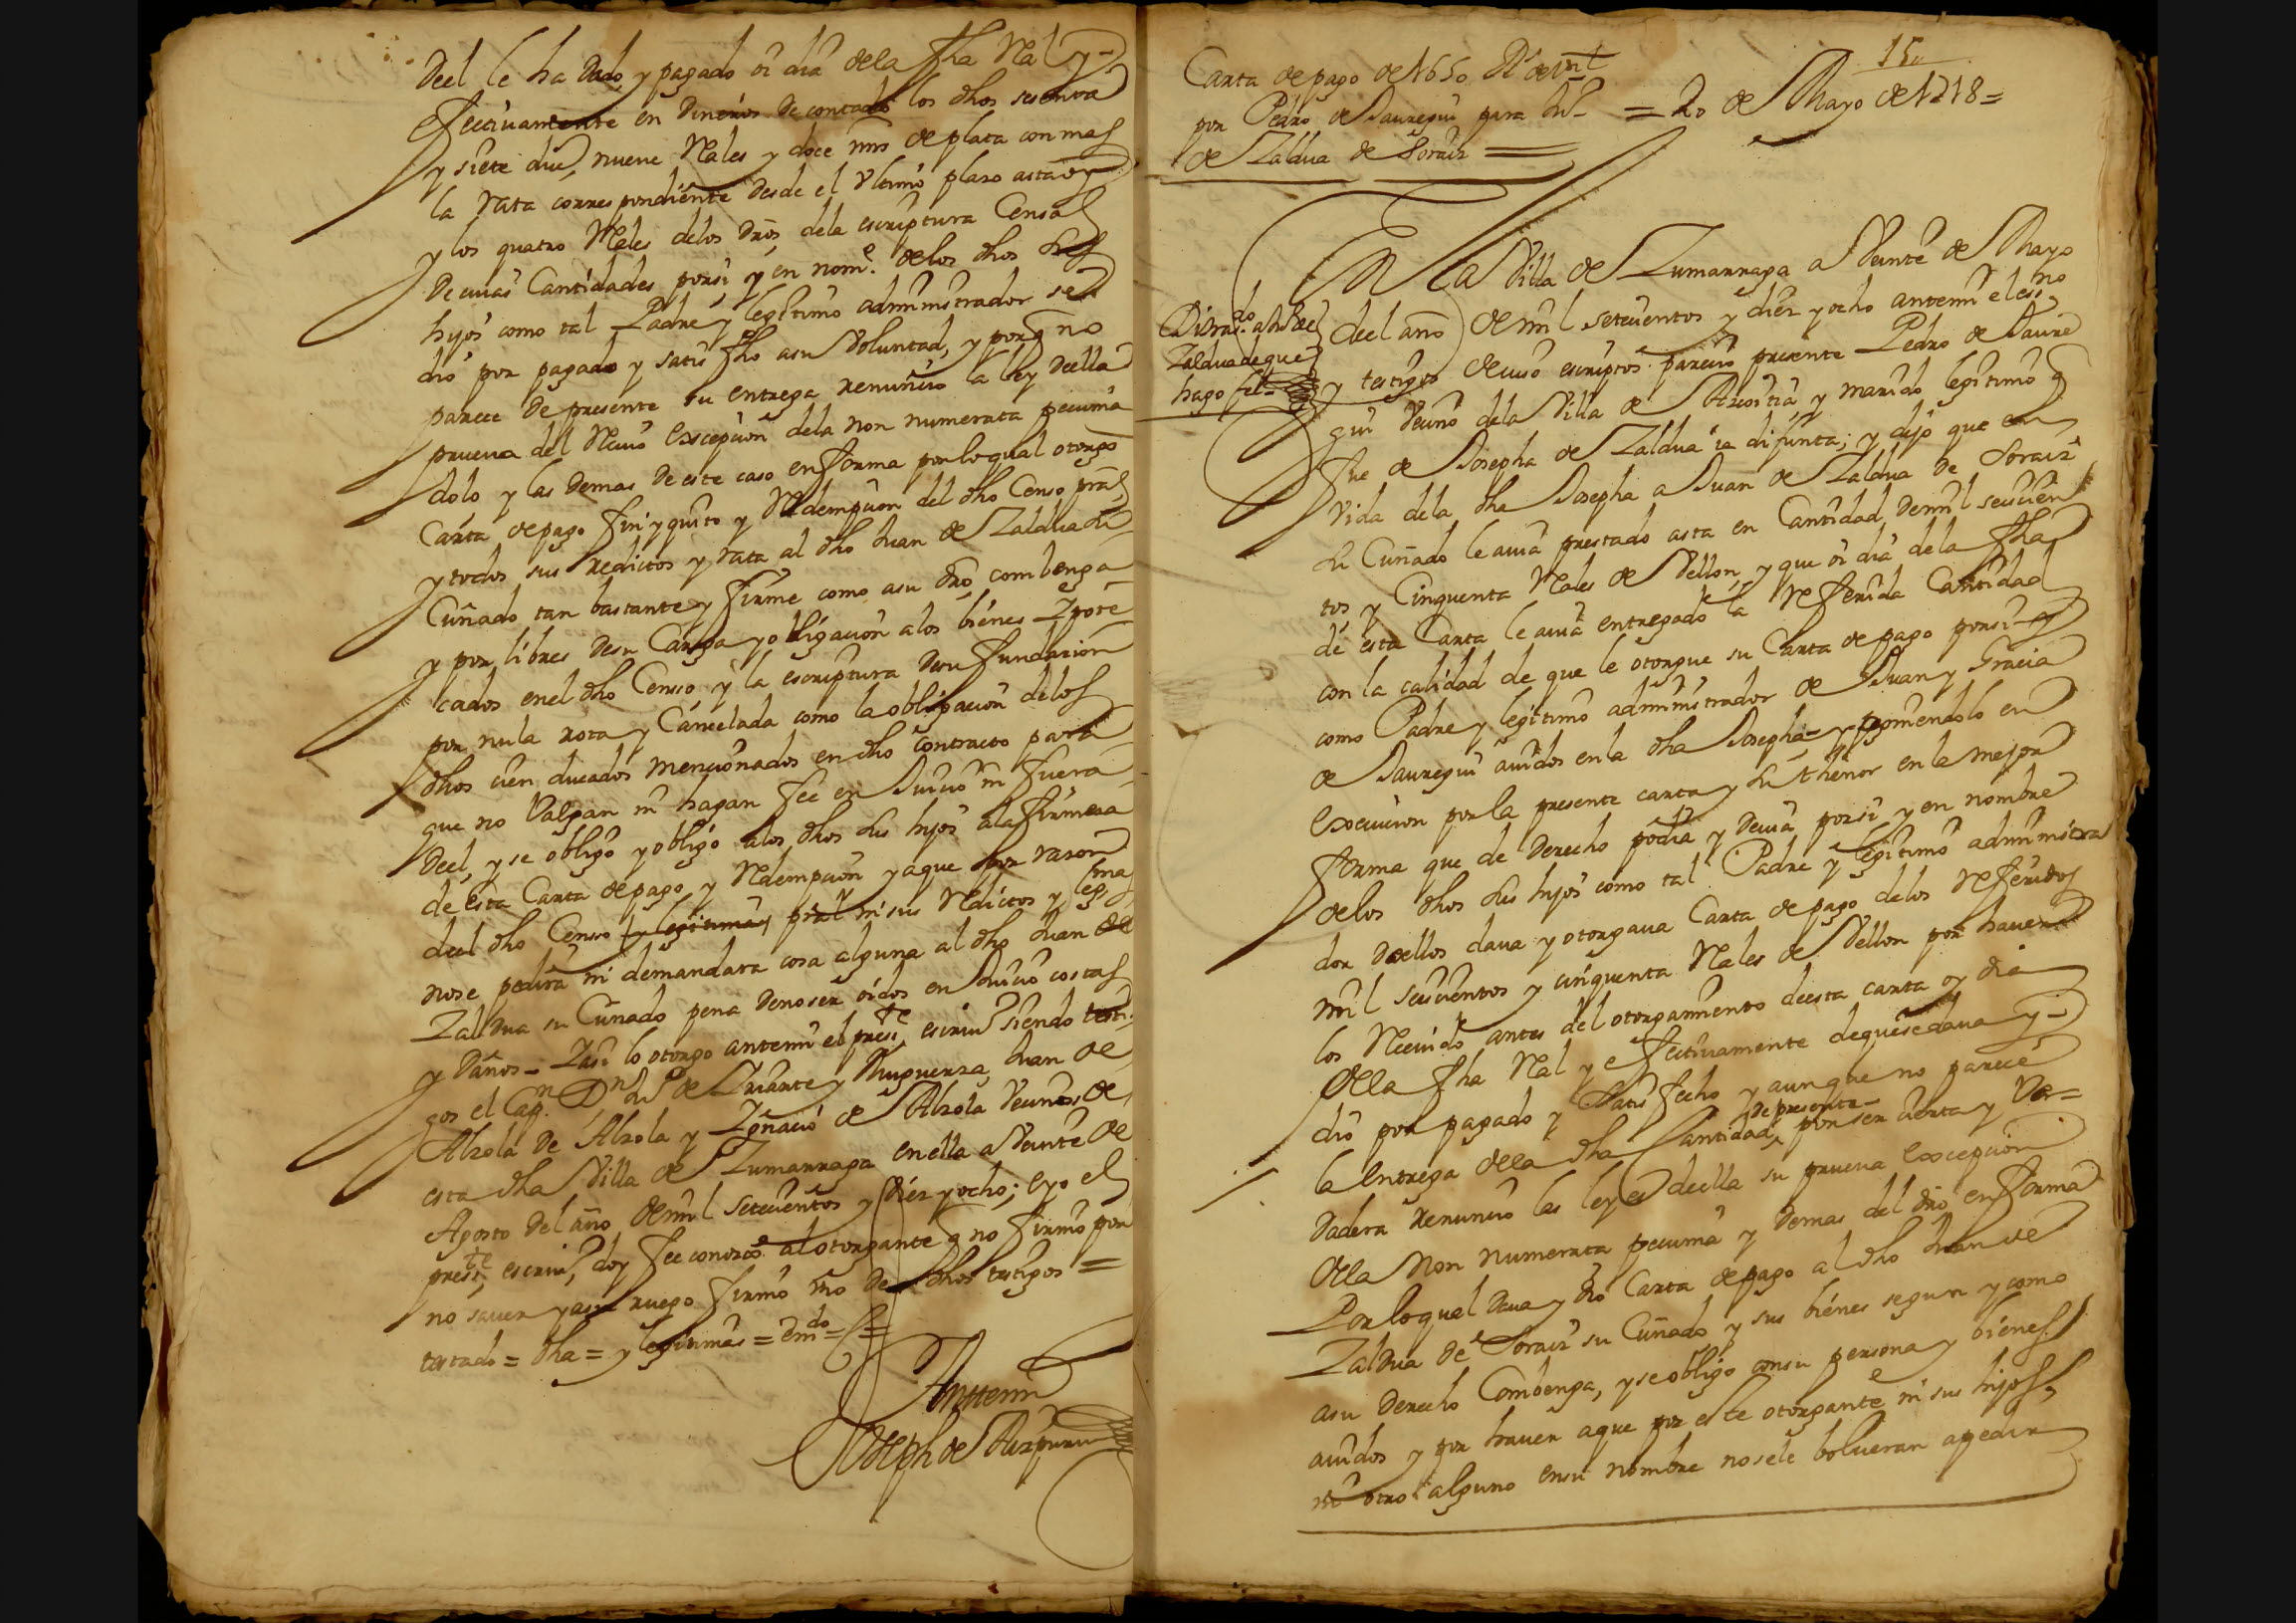 Deel le ha dado y pagado oi dia dela fha Real y
efectivamente en dineros de contado los dhos sesenta
y siete dus, nueve Rales y doce mrs de plata con mas
la rata correspondiente desde el ultimo plaso asta oy
y los quatro Rales delos dros dela escriptura Censal
de cuias Cantidades porsi y en nome. delos dhos sus
hijos como tal Padre y legitimo administrador se
dio por pagado y satisfho asu Voluntad, y porq no
parece de presente su entrega renuncio la ley deella
prueva del Recivo Excepcion dela non numerata pecunia
dolo y las demas de este caso en forma por lo qual otorgo
Carta de pago fin y quito y Redempcion del dho Censo pral
y todos sus reditos y rata al dho Juan de Zaldua su
Cuñado tan bastante y firme como asu dro combenga
y por libres desu Carga y obligacion alos bienes Ypote
cados enel dho Censo y la escriptura desu fundacion
por nula rota y Cancelada como la obligacion delos
dhos cien ducados mencionados en dho contracto para
que no Valgan ni hagan fee en Juicio ni fuera
deel, y se obligo y obligó alos dhos sus hijos ala firmesa
de esta Carta de pago y Redempcion y a que por rason
deel dho Censo y legitimas pral ni sus Reditos y legmas
nose pedira ni demandara cosa alguna al dho Juan de
Zaldua su Cuñado pena de no ser oidos en Juicio costas
y Daños = Y asi lo otorgo antemi el preste escriv.º siendo testi
gos el Capn. Dn Ju.º de Zuriante y Muguerza Juan de
Alzola de Alzola y Ygnacio de Alzola Vecinos de
esta dha Villa de Zumarraga en ella a Veinte de
Agosto del año de mil setecientos y diez y ocho; e yo el
preste. escriv.º, doy fee conozco al otorgante q no firmo por
no saver y asu ruego firmó uno de dhos testigos =
testado = dha = y legitimas = emdo =
Anttemi
Joseph de Aizpuru
15
Carta de pago de 1650 Rs de vnl
por Pedro de Jauregui para Ju.º
de Zaldua de Soraiz
= 20 de Mayo de 1718 =
En la Villa de Zumarraga a Veinte de Mayo
deel año de mil setecientos y diez y ocho antemi el essno
y testigos de iuso escriptos parecio presente Pedro de Jaure
gui Vecino dela Villa de Azcoitia y marido legitimo q
fue de Josepha de Zaldua ia difunta; y dijo que en
Vida dela dha Josepha a Juan de Zaldua de Soraiz
su Cuñado le avia prestado asta en Cantidad de mil seiscien
tos y Cinquenta Rales de Vellon, y que oi dia dela fha
de esta Carta le avia entregado la Referida Cantidad
con la calidad de que le otorgue su Carta de pago porsi y
como Padre y legitimo administrador de Juan y Gracia
de Jauregui avidos en la dha Josepha y poniendolo en
execucion por la presente carta y su thenor en la mejor
forma que de derecho podia y devia porsi y en nombre
delos dhos sus hijos como tal Padre y legitimo administra
dor de ellos dava y otorgava Carta de pago delos Referidos
mil seiscientos y cinquenta Rales de Vellon por haver
los Recivido antes del otorgamiento de esta carta oy dia
dela fha Real y efectivamente de que se dava y
dio por pagado y satisfecho y aunque no parece
de presente
la entrega dela dha Cantidad por ser cierta y Ver=
dadera renuncio las leyes deella su prueva excepcion
dela non numerata pecunia y demas del dro en forma
Por lo qual dava y dio Carta de pago al dho Juan de
Zaldua de Soraiz su Cuñado y sus bienes segun y como
asu derecho Combenga, y se obligo con su persona y bienes
avidos y por haver a que por este otorgante ni sus hijos
ni otro alguno en su nombre nosele bolveran a pedir
Di trasdo. a Ju.º de
Zaldua de que
hago fee